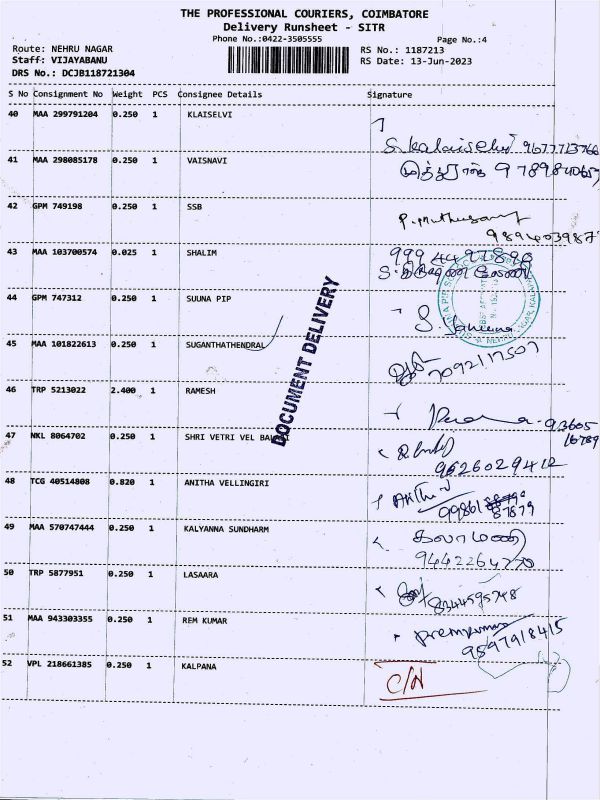 THE PROFESSIONAL COURIERS, COIMBATORE
Delivery Runsheet - SITR
Phone No.:0422-3505555 Page No.:4
Route: NEHRU NAGAR RS No.: 1187213
Staff: VIJAYABANU RS Date: 13-Jun-2023
DRS No.: DCJB118721304
S No Consignment No Weight PCS Consignee Details Signature
40 MAA 299791204 0.250 1 KLAISELVI
S. Kalaiselvi 9677713766
41 MAA 298085178 0.250 1 VAISNAVI
42 GPM 749198 0.250 1 SSB
P. Muthusamy
989403987
43 MAA 103700574 0.025 1 SHALIM
44 GPM 747312 0.250 1 SUUNA PIP
S.
45 MAA 101822613 0.250 1 SUGANTHATHENDRAL
7092117507
DOCUMENT DELIVERY
46 TRP 5213022 2.400 1 RAMESH
93605
16789
47 NKL 8064702 0.250 1 SHRI VETRI VEL
9626029412
48 TCG 40514808 0.820 1 ANITHA VELLINGIRI
Anitha
99861
87879
49 MAA 570747444 0.250 1 KALYANNA SUNDHARM
கலாமணி
9442264770
50 TRP 5877951 0.250 1 LASAARA
8344595748
51 MAA 943303355 0.250 1 REM KUMAR
Premkumar
9597918415
52 VPL 218661385 0.250 1 KALPANA
C/H